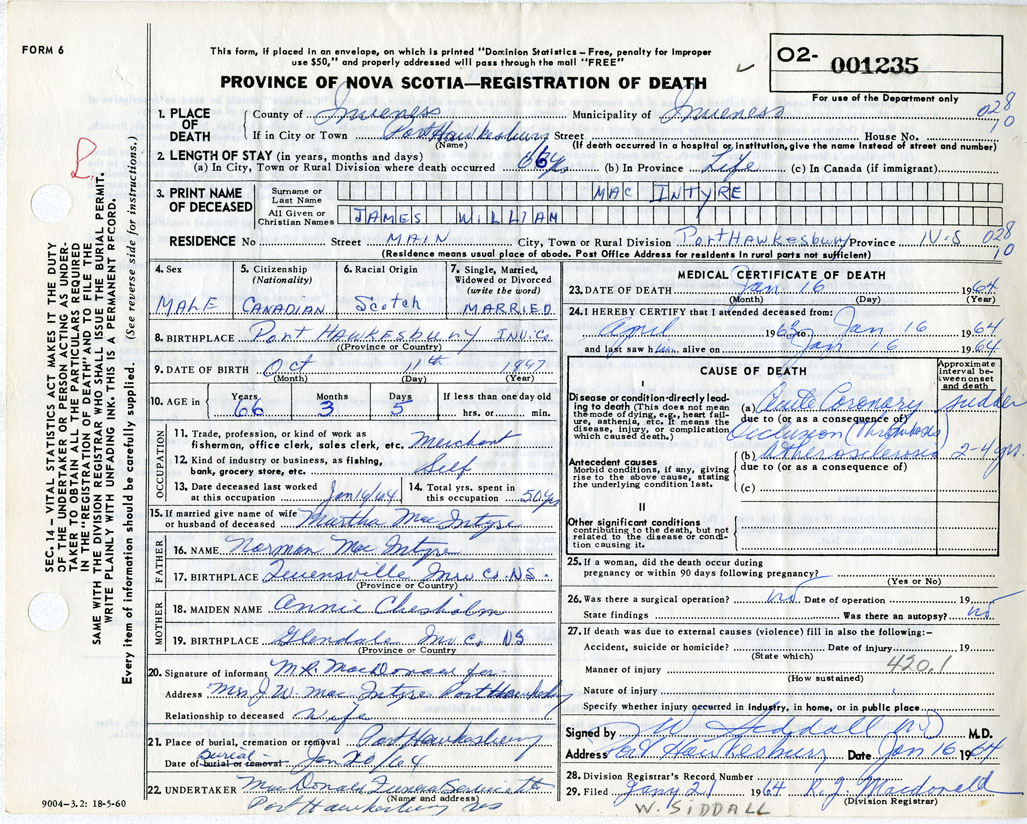 FORM 6
This form, if placed in an envelope, on which is printed "Dominion Statistics – Free, penalty for improper
use $50," and properly addressed will pass through the mail "FREE"
PROVINCE OF NOVA SCOTIA—REGISTRATION OF DEATH
O2- 001235
For use of the Department only
1. PLACE OF DEATH
County of Inverness Municipality of Inverness 028
If in City or Town Port Hawkesbury Street House No. 10
(Name) (If death occurred in a hospital or institution, give the name instead of street and number)
2. LENGTH OF STAY (in years, months and days)
(a) In City, Town or Rural Division where death occurred 66 yrs (b) In Province Life (c) In Canada (if immigrant)
3. PRINT NAME OF DECEASED
Surname or Last Name MAC INTYRE
All Given or Christian Names JAMES WILLIAM
RESIDENCE No Street MAIN City, Town or Rural Division PORT HAWKESBURY Province N.S 028
(Residence means usual place of abode. Post Office Address for residents in rural parts not sufficient) 10
4. Sex MALE
5. Citizenship (Nationality) CANADIAN
6. Racial Origin Scotch
7. Single, Married, Widowed or Divorced (write the word) MARRIED
8. BIRTHPLACE Port Hawkesbury INV.C.
(Province or Country)
9. DATE OF BIRTH Oct 11th 1897
(Month) (Day) (Year)
10. AGE in Years 66 Months 3 Days 5 If less than one day old hrs. or min.
OCCUPATION
11. Trade, profession, or kind of work as
fisherman, office clerk, sales clerk, etc. Merchant
12. Kind of industry or business, as fishing,
bank, grocery store, etc. Self
13. Date deceased last worked
at this occupation Jan 16/64
14. Total yrs. spent in
this occupation 50 yrs
15. If married give name of wife
or husband of deceased Martha Mac Intyre
FATHER
16. NAME Norman Mac Intyre
17. BIRTHPLACE Inv. C. NS.
(Province or Country)
MOTHER
18. MAIDEN NAME Annie Chisholm
19. BIRTHPLACE Glendale Inv C. NS
(Province or Country)
20. Signature of informant M.R. MacDonald for
Address Mrs J. W. Mac Intyre Port Hawkesbury
Relationship to deceased Wife
21. Place of burial, cremation or removal Port Hawkesbury
Burial
Date of burial or removal Jan 20/64
22. UNDERTAKER MacDonald Funeral Service
(Name and address)
Port Hawkesbury NS
9004-3.2: 18-5-60
MEDICAL CERTIFICATE OF DEATH
23. DATE OF DEATH Jan 16 1964
(Month) (Day) (Year)
24. I HEREBY CERTIFY that I attended deceased from:
April 1963 to Jan 16 1964
and last saw him alive on Jan 16 1964
CAUSE OF DEATH
Approximate interval between onset and death
I
Disease or condition directly leading to death (This does not mean the mode of dying, e.g., heart failure, asthenia, etc. It means the disease, injury, or complication which caused death.)
(a) Acute Coronary sudden
due to (or as a consequence of)
Occlusion (Thrombosis)
Antecedent causes
Morbid conditions, if any, giving rise to the above cause, stating the underlying condition last.
(b) Atherosclerosis 2-4 yrs.
due to (or as a consequence of)
(c)
II
Other significant conditions
contributing to the death, but not related to the disease or condition causing it.
25. If a woman, did the death occur during
pregnancy or within 90 days following pregnancy?
(Yes or No)
26. Was there a surgical operation? no Date of operation 19
State findings Was there an autopsy? no
27. If death was due to external causes (violence) fill in also the following:–
Accident, suicide or homicide? Date of injury 19
(State which)
420.1
Manner of injury
(How sustained)
Nature of injury
Specify whether injury occurred in industry, in home, or in public place.
Signed by W Siddall MD M.D.
Address Port Hawkesbury Date Jan 16 1964
28. Division Registrar's Record Number
29. Filed Jany 21 1964 R. J. Macdonald
(Division Registrar)
W. SIDDALL
SEC. 14 – VITAL STATISTICS ACT MAKES IT THE DUTY
OF THE UNDERTAKER OR PERSON ACTING AS UNDER-
TAKER TO OBTAIN ALL THE PARTICULARS REQUIRED
IN THE "REGISTRATION OF DEATH" AND TO FILE THE
SAME WITH THE DIVISION REGISTRAR WHO SHALL ISSUE THE BURIAL PERMIT.
WRITE PLAINLY WITH UNFADING INK. THIS IS A PERMANENT RECORD.
Every item of information should be carefully supplied. (See reverse side for instructions.)